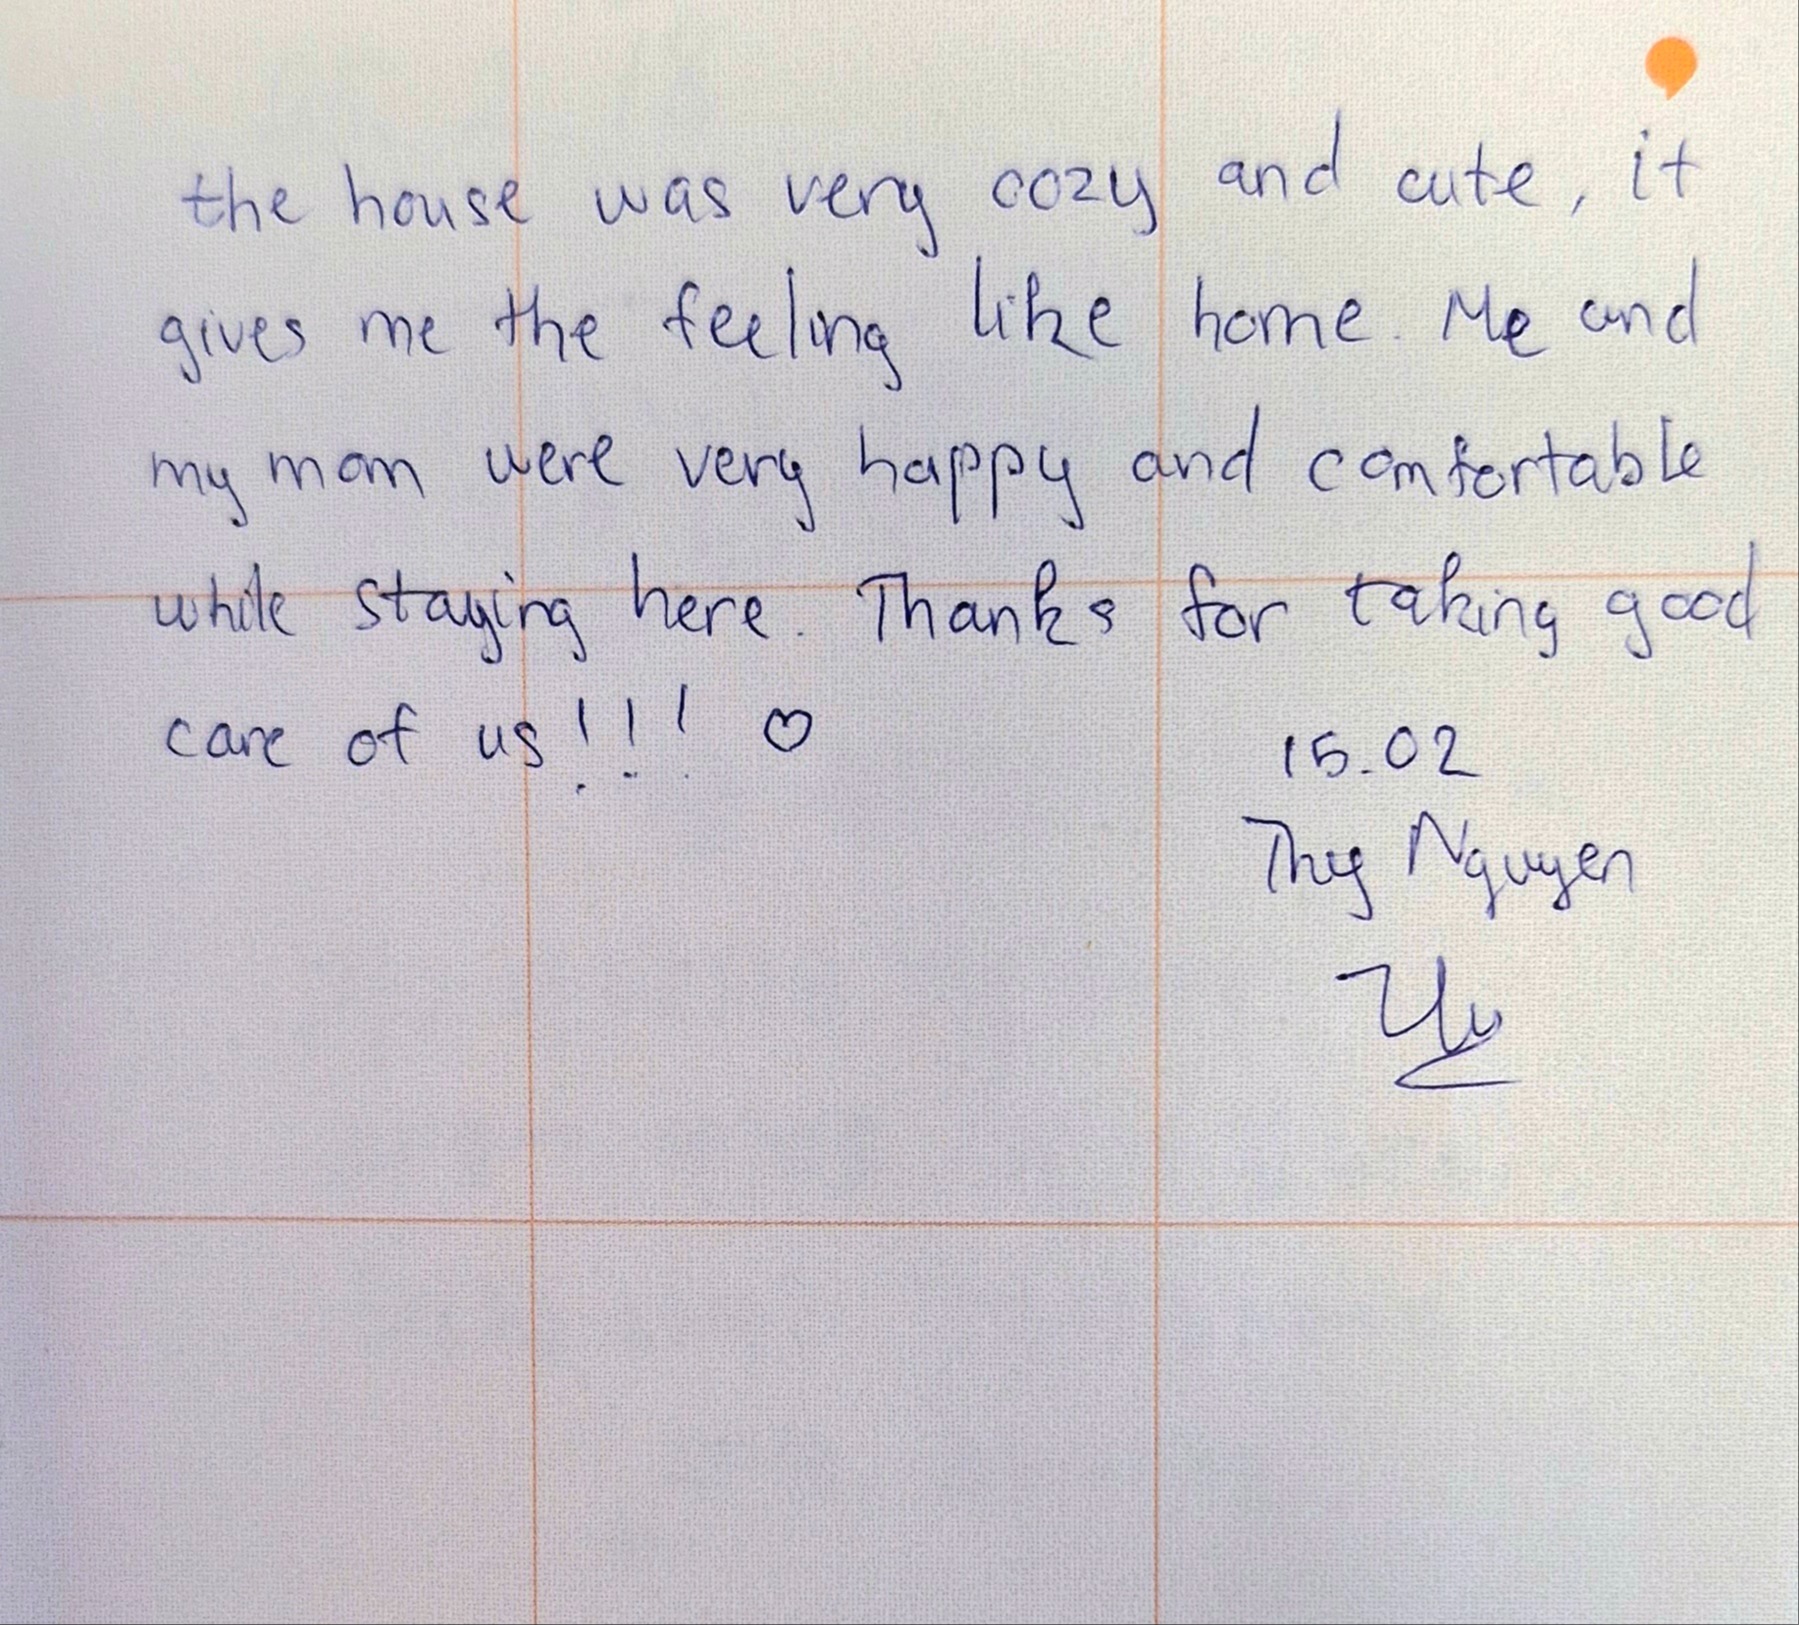 the house was very cozy and cute, it
gives me the feeling like home. Me and
my mom were very happy and comfortable
while staying here. Thanks for taking good
care of us!!! ♡
15.02
Thy Nguyen